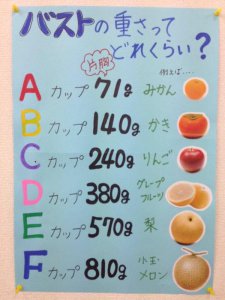 バストの重さって
どれくらい?
片胸
例えば....
A カップ 71g みかん
B カップ 140g かき
C カップ 240g りんご
D カップ 380g グレープ
フルーツ
E カップ 570g 梨
F カップ 810g 小玉
メロン